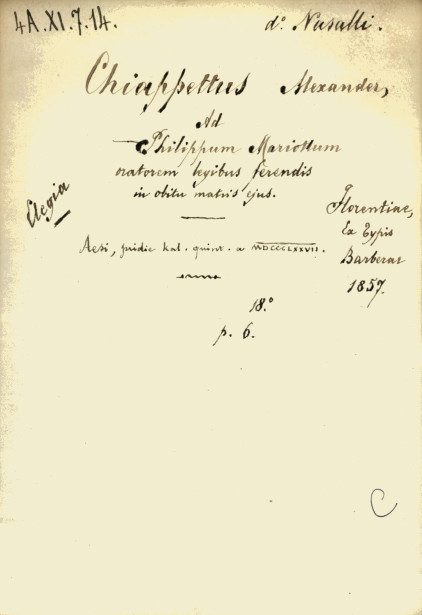 4A.XI.7.14.
d.º Nasalli.
Chiappettus Alexander,
Ad
Philippum Mariottum
oratorem legibus ferendis
in obitu matris ejus.
Elegia
Aesi, pridie kal. quint. a MDCCCLXXVII.
Florentiae,
Ex Typis
Barberae
1857.
18.º
p. 6.
C